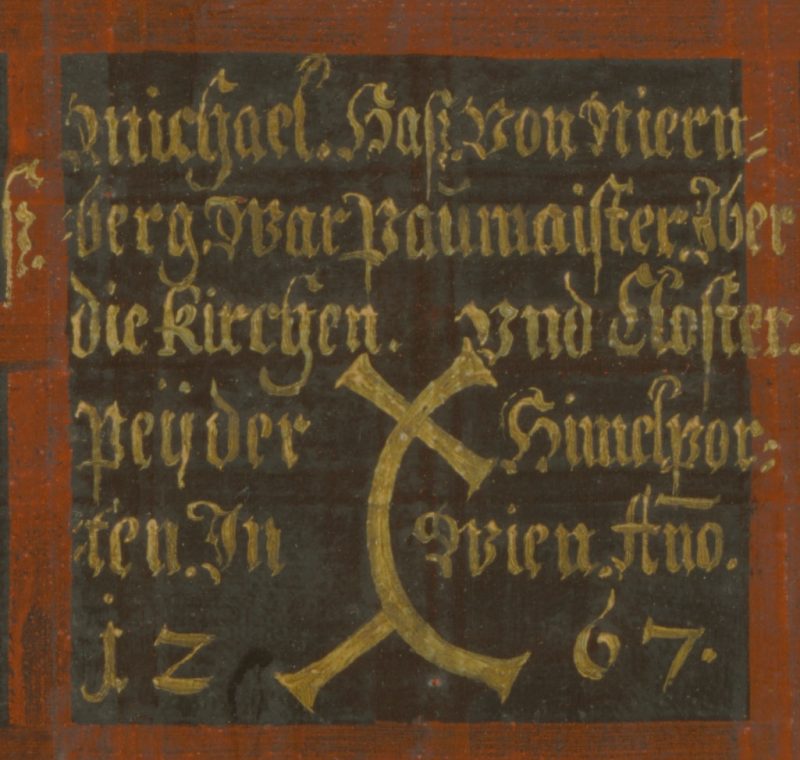 Michael. Hasz. Von Niern-
berg. War Paumaister. Iber
die Kirchen. Vnd Closter.
Peÿ der Himelpor-
ten. In Wien. An̄o.
1267.